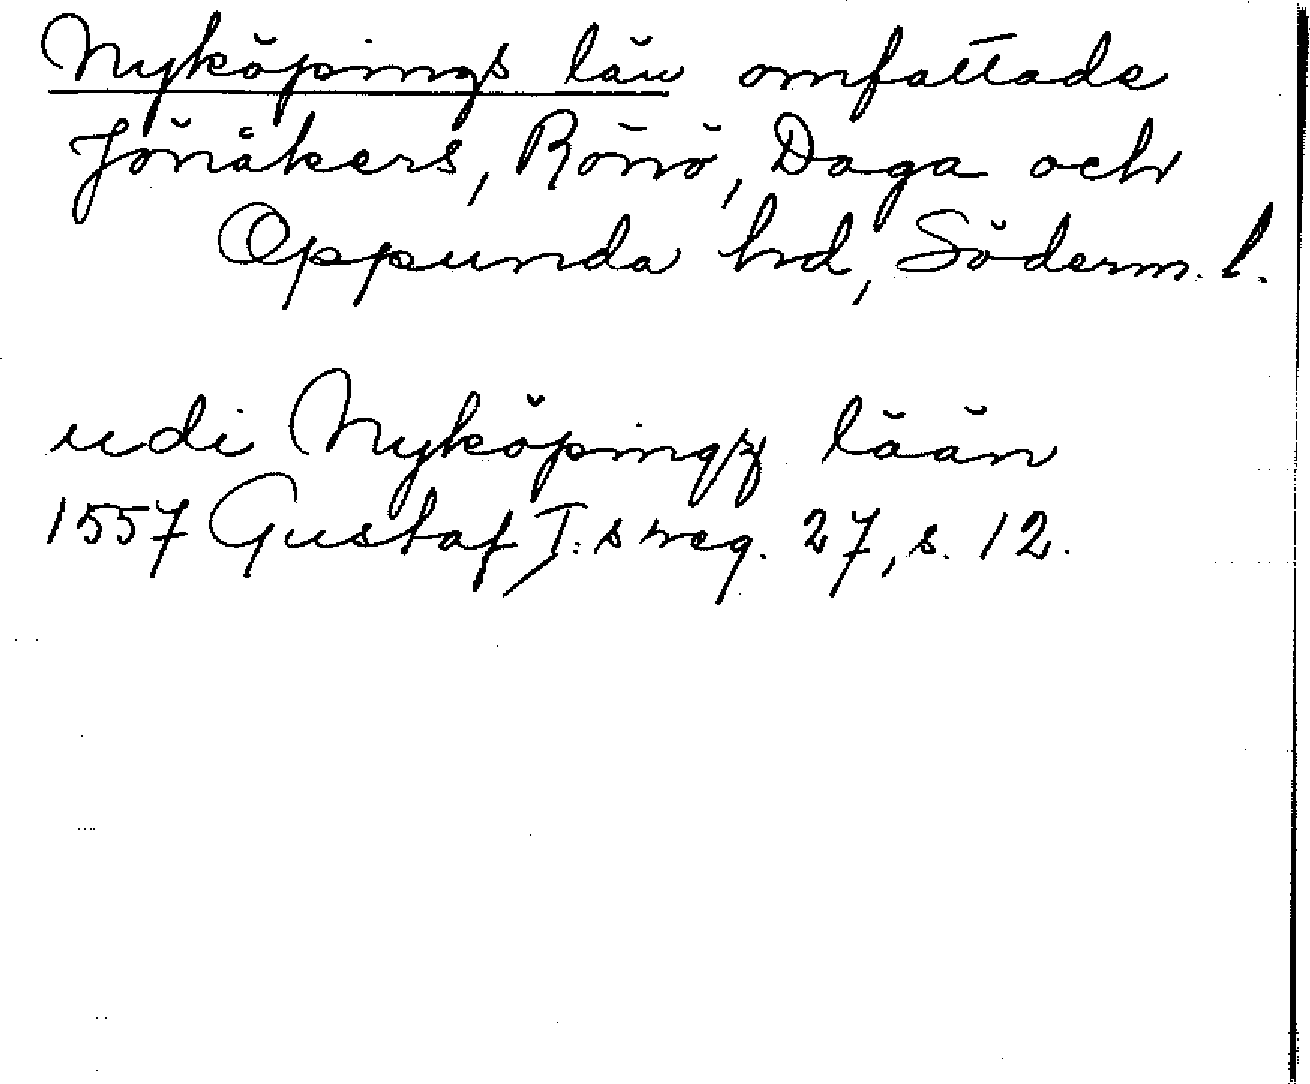 Nyköpings län omfattade
Jönåkers, Rönö, Daga och
Oppunda hrd, Söderm. l.
udi Nyköpingz lään
1557 Gustaf I:s reg. 27, s. 12.